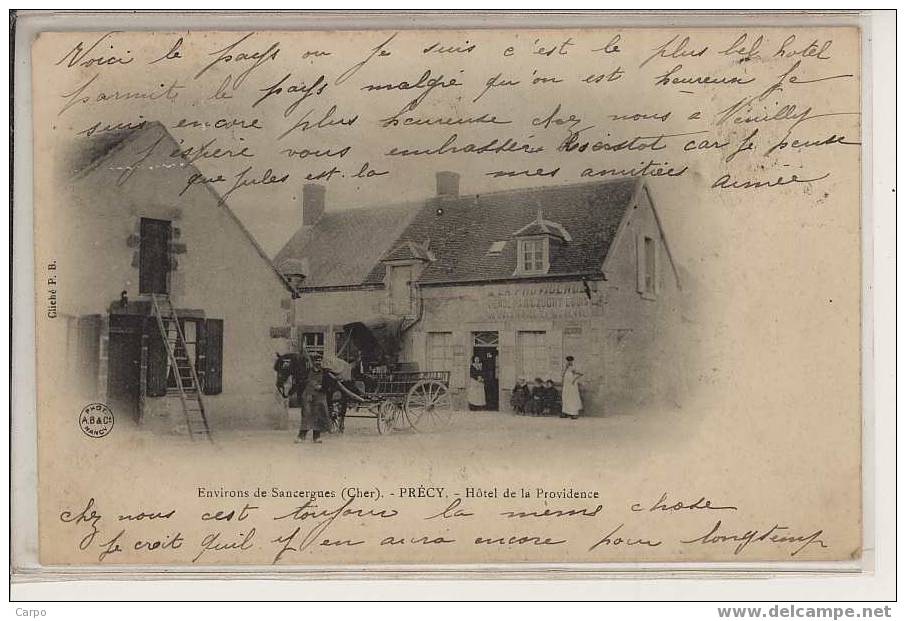 Voici le pays ou Je suis c'est le plus bel hotel
parmit le pays malgré qu'on est heureux Je
suis encore plus heureuse chez nous a Neuilly
J'espère vous embrasser bientot car Je pense
que Jules est la mes amitiées Aimée
Cliché P. B.
A LA PROVIDENCE
PHOT.
A.B & Cie
NANCY
Environs de Sancergues (Cher). - PRÉCY. - Hôtel de la Providence
chez nous cest toujour la mème chose
Je croit qu'il y en aura encore pour longtemp
Carpo
www.delcampe.net